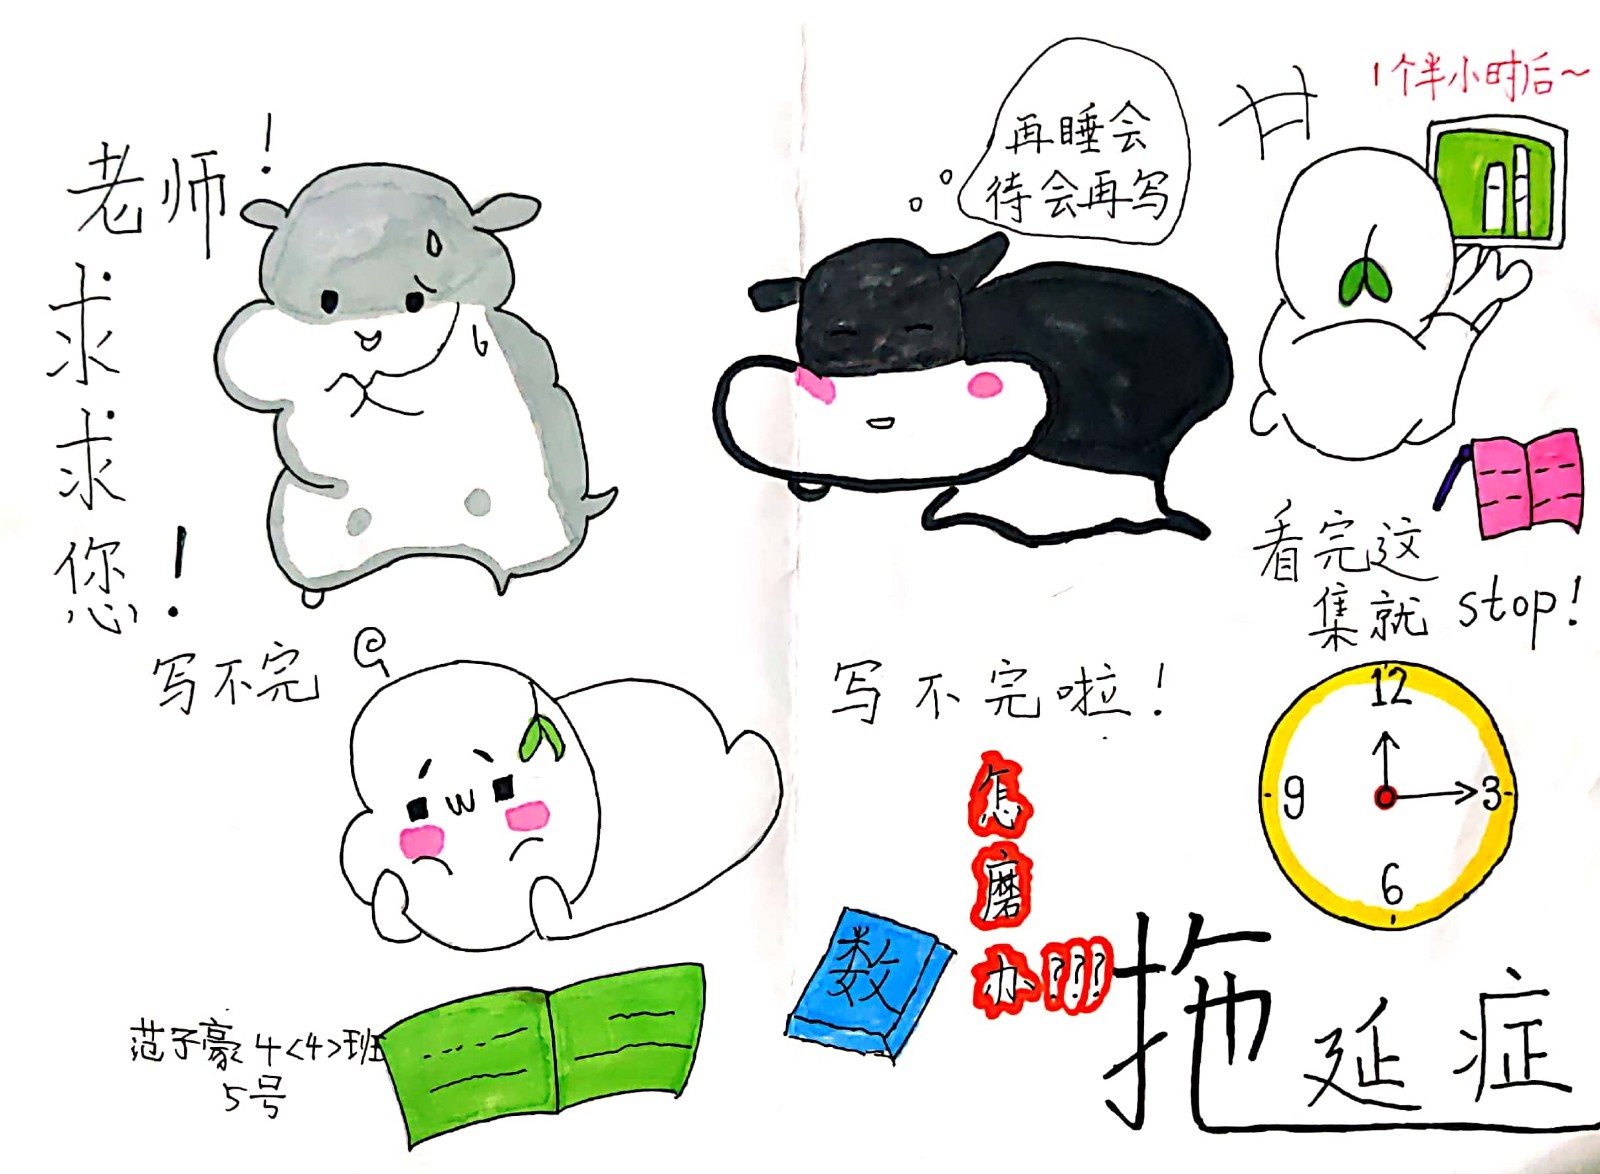 老师!
求
求
您!
再睡会
待会再写
1个半小时后~
看完这
集就 stop!
写不完
写不完啦!
12
9
3
6
怎
磨
办???
数
拖延症
范子豪 4<4>班
5号